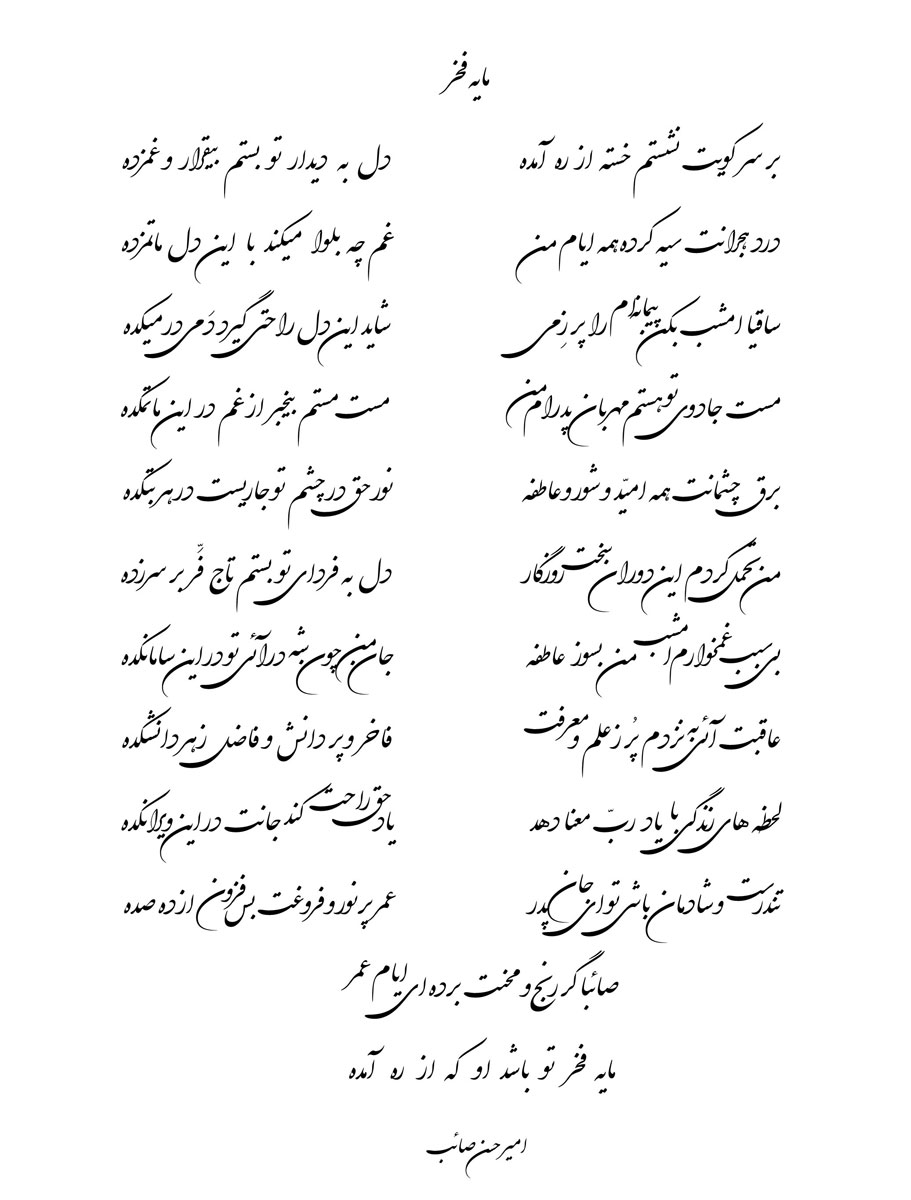 مایه فخر
بر سر کویت نشستم خسته از ره آمده دل به دیدار تو بستم بیقرار و غمزده
درد هجرانت سیه کرده همه ایام من غم چه بلوا میکند با این دل ماتمزده
ساقیا امشب بکن پیمانه‌ام را پر زِ می شاید این دل راحتی گیرد دَمی در میکده
مست جادوی تو هستم مهربان پدرام من مست مستم بیخبر از غم در این ماتمکده
برق چشمانت همه امیّد و شور و عاطفه نور حق در چشم تو جاریست در هر بتکده
من تحمل کردم این دوران سخت روزگار دل به فردای تو بستم تاج فرّ بر سر زده
بی سبب غمخوارم امشب من بسوز عاطفه جان من چون شه درآئی تو در این سامانکده
عاقبت آئی به نزدم پُر ز علم و معرفت فاخر و پر دانش و فاضل ز هر دانشکده
لحظه های زندگی با یاد ربّ معنا دهد یاد حق راحت کند جانت در این ویرانکده
تندرست و شادمان باشی تو ای جان پدر عمر پر نور و فروغت بس فزون از ده صده
صائبا گر رنج و محنت برده ای ایام عمر
مایه فخر تو باشد او که از ره آمده
امیرحسن صائب